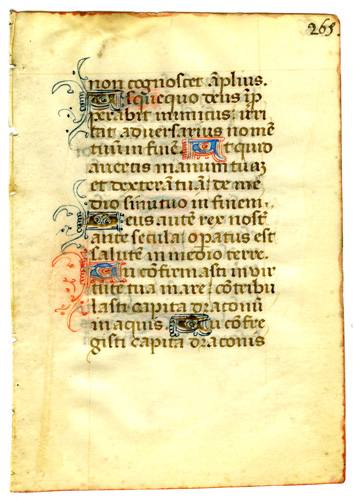 265.
non cognoscet āplius.
Usq̄uequo deus īp
perabit inimicus: irri
tat adversarius nomē
tuum in finē. Ut quid
avertis manum tuaʒ
et dexterā tuā: de me
dio sinu tuo in finem.
Deus autē rex nost̄
ante secula: opatus est
salutē in medio terre.
Tu confirmasti in vir
tute tua mare: cōtribu
lasti capita draconū
in aquis. Tu cōfre
gisti capita draconis